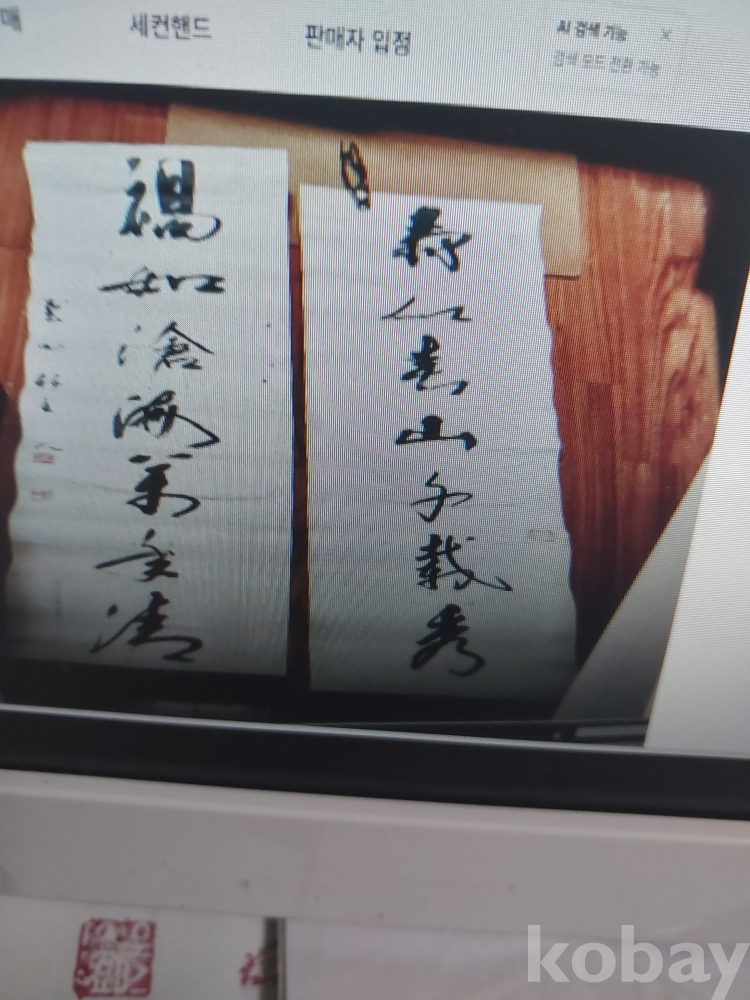 매
세컨핸드
판매자 입점
AI 검색 가능 ×
검색 모드 전환 가능
壽似春山千載秀
福如滄海萬年清
kobay